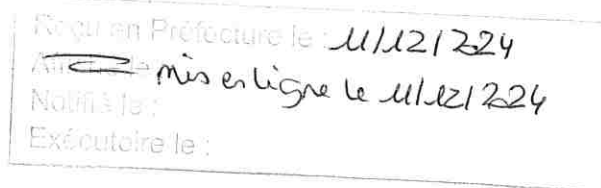 Reçu en Préfecture le : 11/12/2024
Affiché le mis en ligne le 11/12/2024
Notifié le :
Exécutoire le :